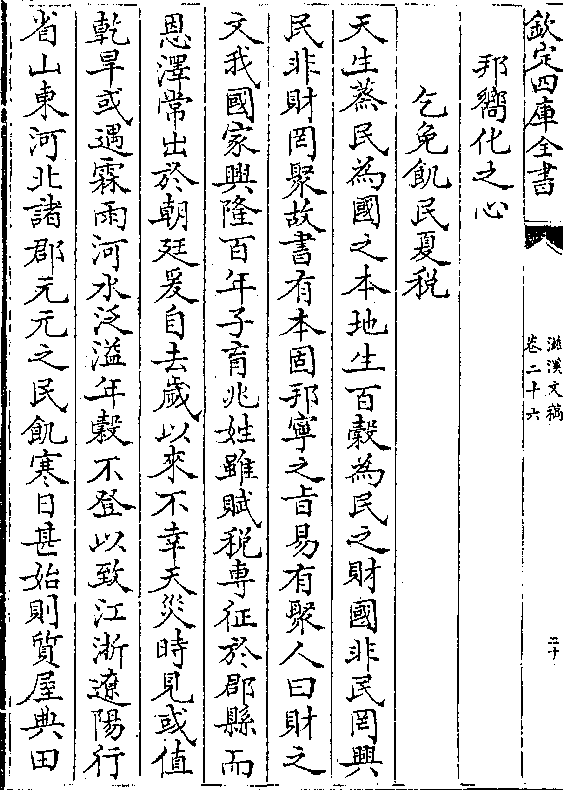 欽定四庫全書
滋溪文稿
卷二十六
二十
邦嚮化之心
乞免飢民夏税
天生蒸民為國之本地生百穀為民之財國非民罔興
民非財罔聚故書有本固邦寧之旨易有聚人曰財之
文我國家興隆百年子育兆姓雖賦税専征於郡縣而
恩澤常出於朝廷爰自去歲以來不幸天災時見或值
乾旱或遇霖雨河水泛溢年穀不登以致江浙遼陽行
省山東河北諸郡元元之民飢寒日甚始則質屋典田